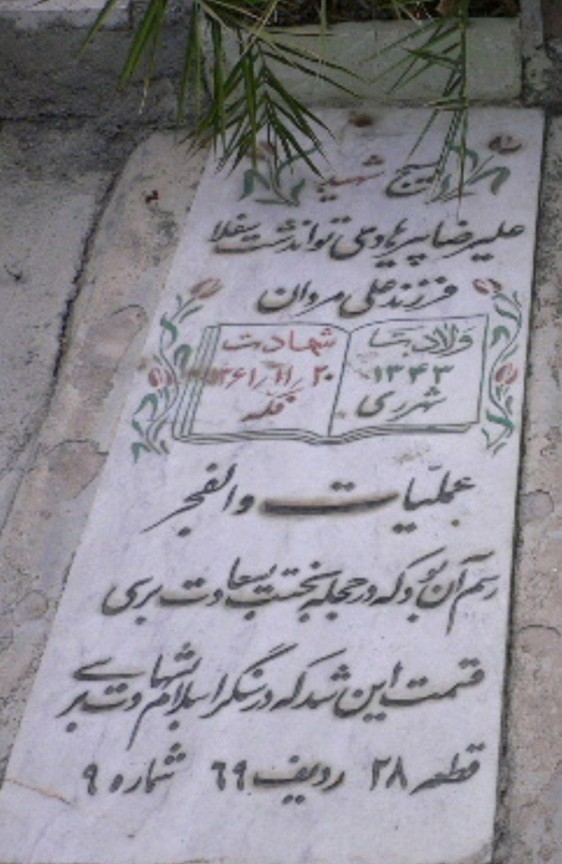 بسیج شهید
علیرضا پیرهادی تواندشت سفلا
فرزند علی مردان
ولادت
۱۳۴۳
شهر ری
شهادت
۲۰/۱۱/۱۳۶۱
فکه
عملیات والفجر
رسم آن بود که در حجله بختت بسعادت برسی
قسمت این شد که در سنگر اسلام بشهادت برسی
قطعه ۲۸ ردیف ۶۹ شماره ۹